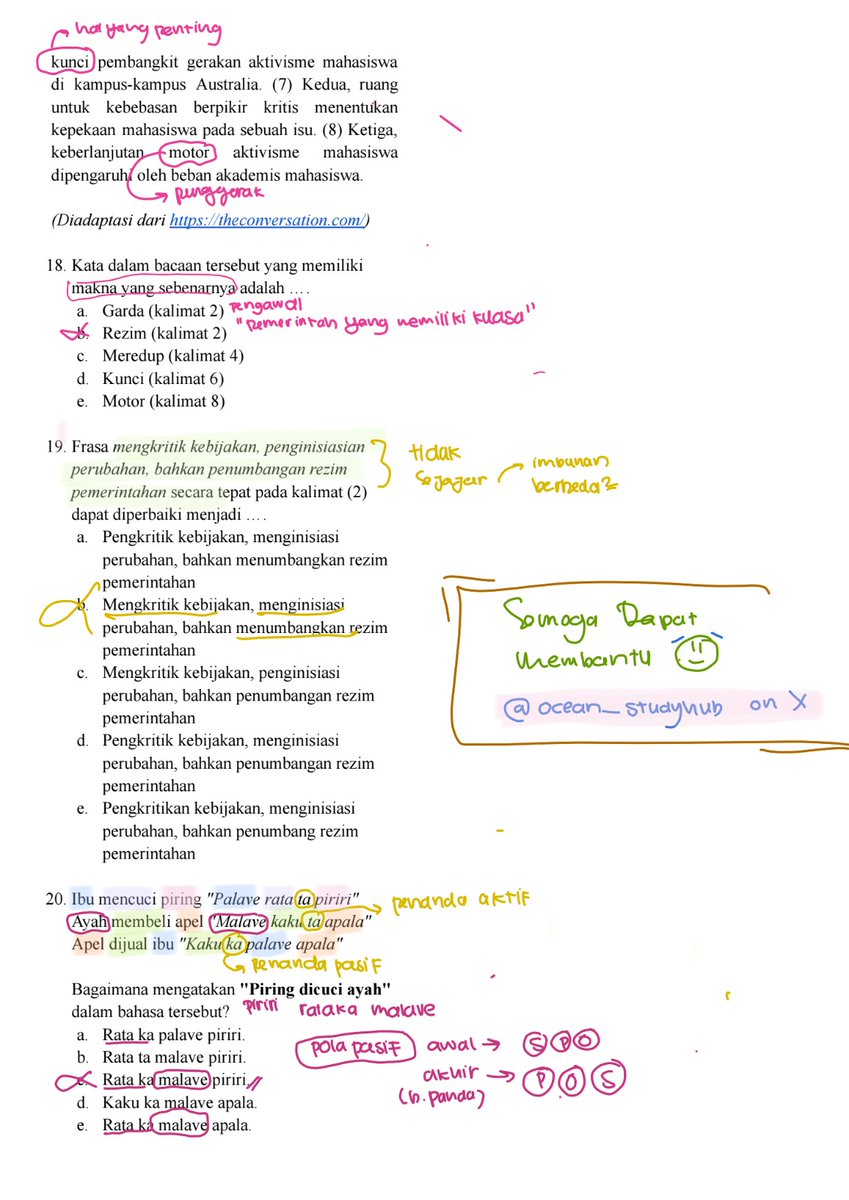 hal yang penting
kunci pembangkit gerakan aktivisme mahasiswa
di kampus-kampus Australia. (7) Kedua, ruang
untuk kebebasan berpikir kritis menentukan
kepekaan mahasiswa pada sebuah isu. (8) Ketiga,
keberlanjutan motor aktivisme mahasiswa
dipengaruhi oleh beban akademis mahasiswa.
penggerak
(Diadaptasi dari https://theconversation.com/)
18. Kata dalam bacaan tersebut yang memiliki
makna yang sebenarnya adalah ….
a. Garda (kalimat 2) pengawal
b. Rezim (kalimat 2) "pemerintah yang memiliki kuasa"
c. Meredup (kalimat 4)
d. Kunci (kalimat 6)
e. Motor (kalimat 8)
19. Frasa mengkritik kebijakan, penginisiasian
perubahan, bahkan penumbangan rezim
pemerintahan secara tepat pada kalimat (2)
dapat diperbaiki menjadi ….
tidak
sejajar
imbuhan
berbeda2
a. Pengkritik kebijakan, menginisiasi
perubahan, bahkan menumbangkan rezim
pemerintahan
b. Mengkritik kebijakan, menginisiasi
perubahan, bahkan menumbangkan rezim
pemerintahan
c. Mengkritik kebijakan, penginisiasi
perubahan, bahkan penumbangan rezim
pemerintahan
d. Pengkritik kebijakan, menginisiasi
perubahan, bahkan penumbangan rezim
pemerintahan
e. Pengkritikan kebijakan, menginisiasi
perubahan, bahkan penumbang rezim
pemerintahan
Semoga Dapat
Membantu
@ocean_studyhub on X
20. Ibu mencuci piring "Palave rata ta piriri"
penanda aktif
Ayah membeli apel "Malave kaku ta apala"
Apel dijual ibu "Kaku ka palave apala"
penanda pasif
Bagaimana mengatakan "Piring dicuci ayah"
dalam bahasa tersebut?
piriri rataka malave
a. Rata ka palave piriri.
b. Rata ta malave piriri.
c. Rata ka malave piriri.
d. Kaku ka malave apala.
e. Rata ka malave apala.
pola pasif awal → S P O
akhir → P O S
(b. panda)